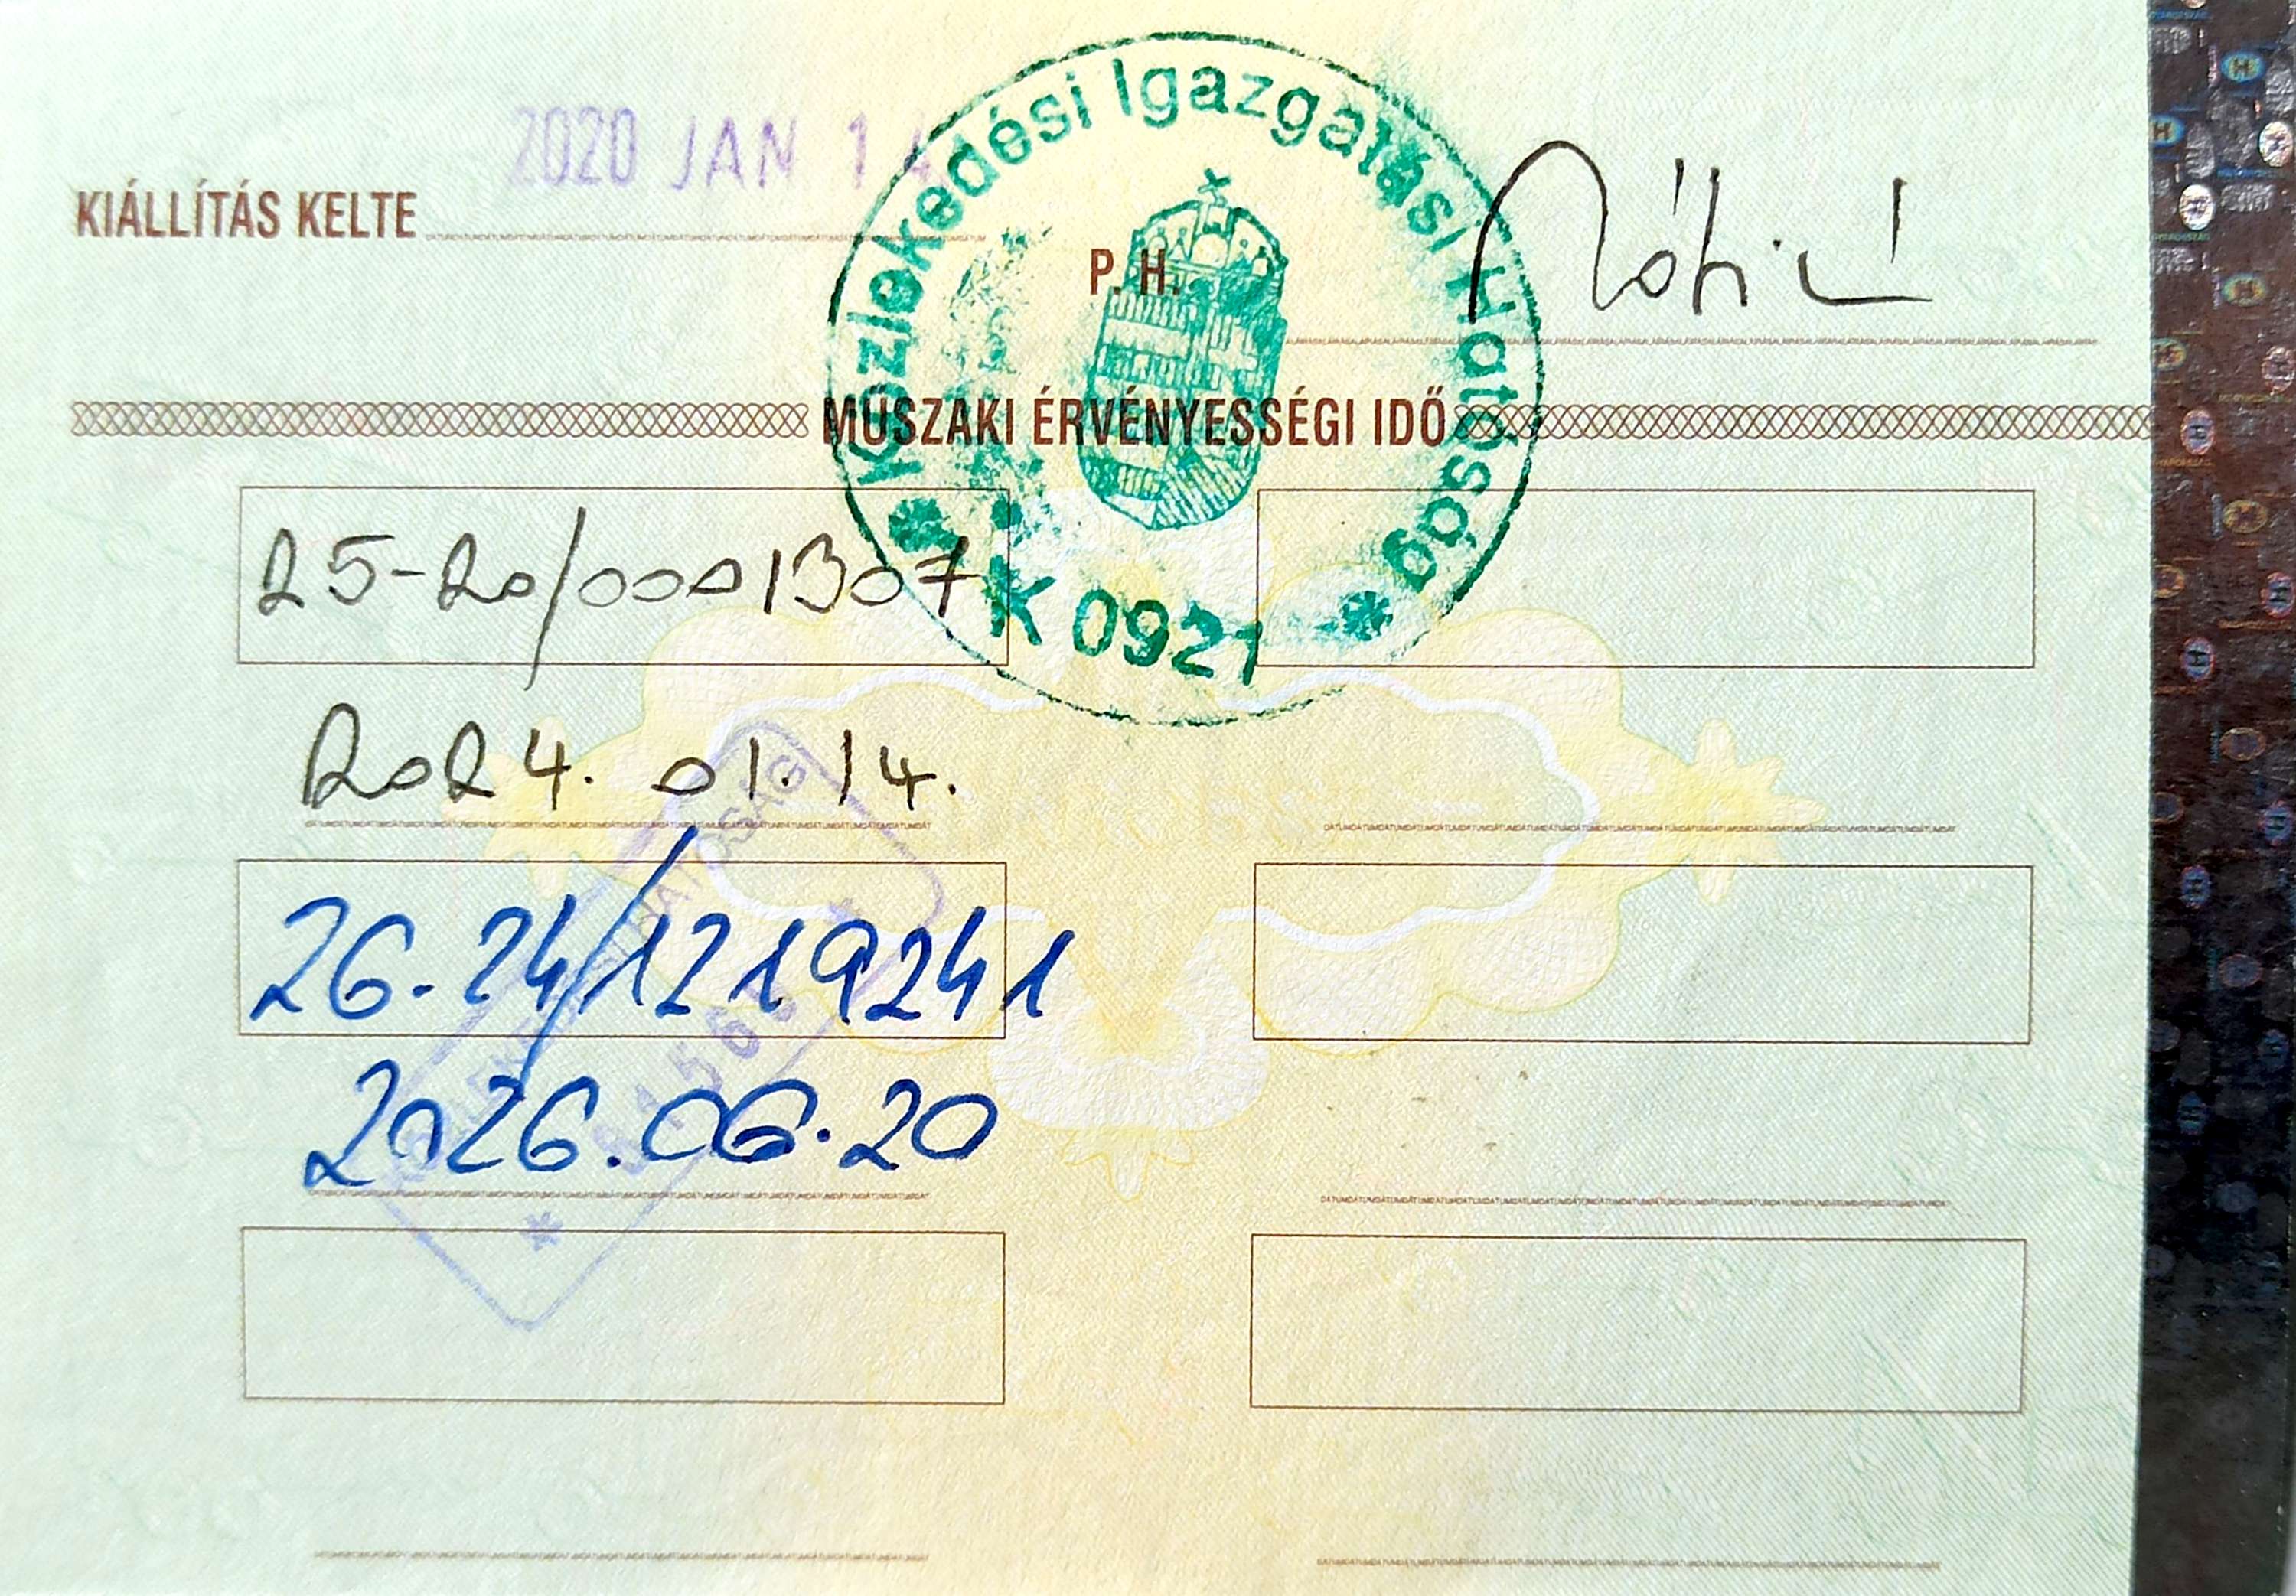 2020 JAN 14
KIÁLLÍTÁS KELTE
Közlekedési Igazgatási Hatóság
P. H.
K 0921
MŰSZAKI ÉRVÉNYESSÉGI IDŐ
25-20/0001307
2024. 01. 14.
26-24/1219241
2026.06.20